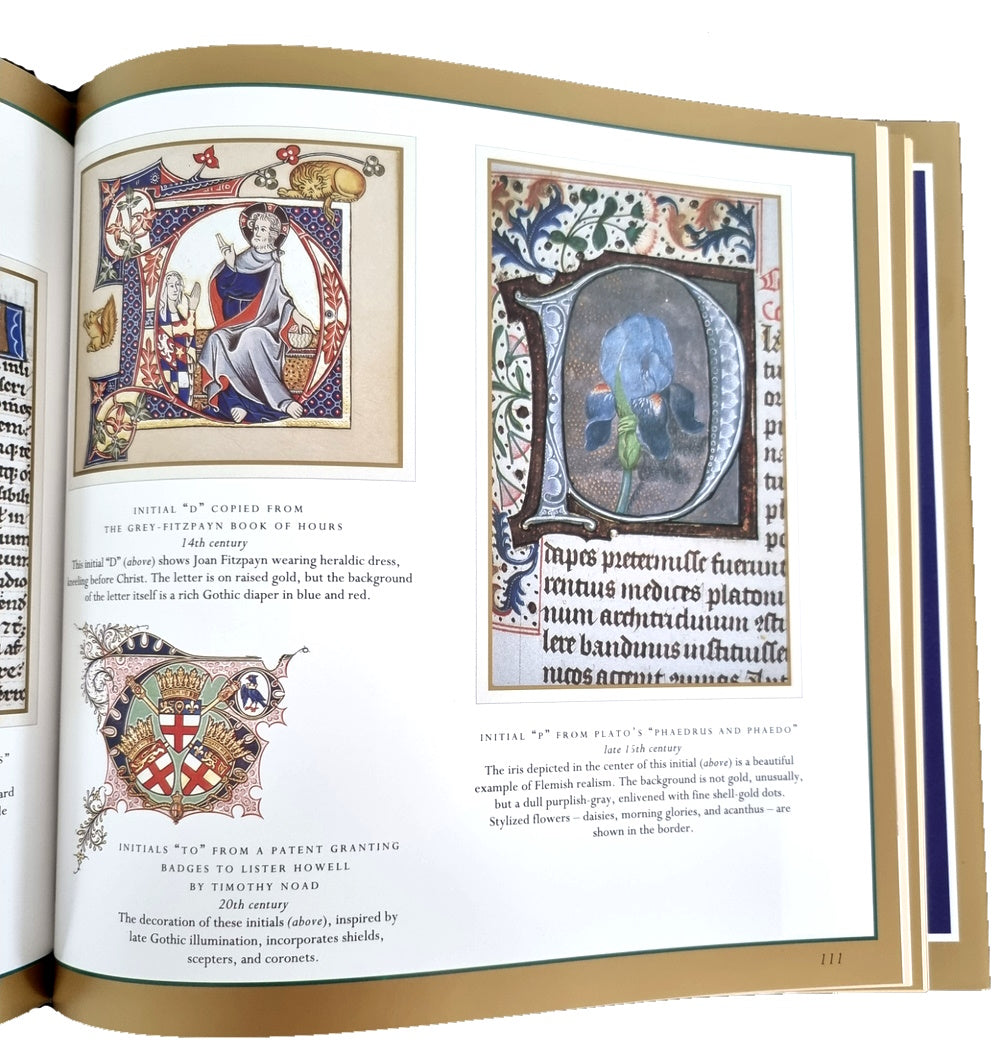 INITIAL “D” COPIED FROM
THE GREY-FITZPAYN BOOK OF HOURS
14th century
This initial “D” (above) shows Joan Fitzpayn wearing heraldic dress,
kneeling before Christ. The letter is on raised gold, but the background
of the letter itself is a rich Gothic diaper in blue and red.
INITIALS “TO” FROM A PATENT GRANTING
BADGES TO LISTER HOWELL
BY TIMOTHY NOAD
20th century
The decoration of these initials (above), inspired by
late Gothic illumination, incorporates shields,
scepters, and coronets.
dapes pretermisse fuerunt
rentius medices platoni
num architriclinum
lere bandinus instituisse
nicos accepit
INITIAL “P” FROM PLATO’S “PHAEDRUS AND PHAEDO”
late 15th century
The iris depicted in the center of this initial (above) is a beautiful
example of Flemish realism. The background is not gold, unusually,
but a dull purplish-gray, enlivened with fine shell-gold dots.
Stylized flowers – daisies, morning glories, and acanthus – are
shown in the border.
111